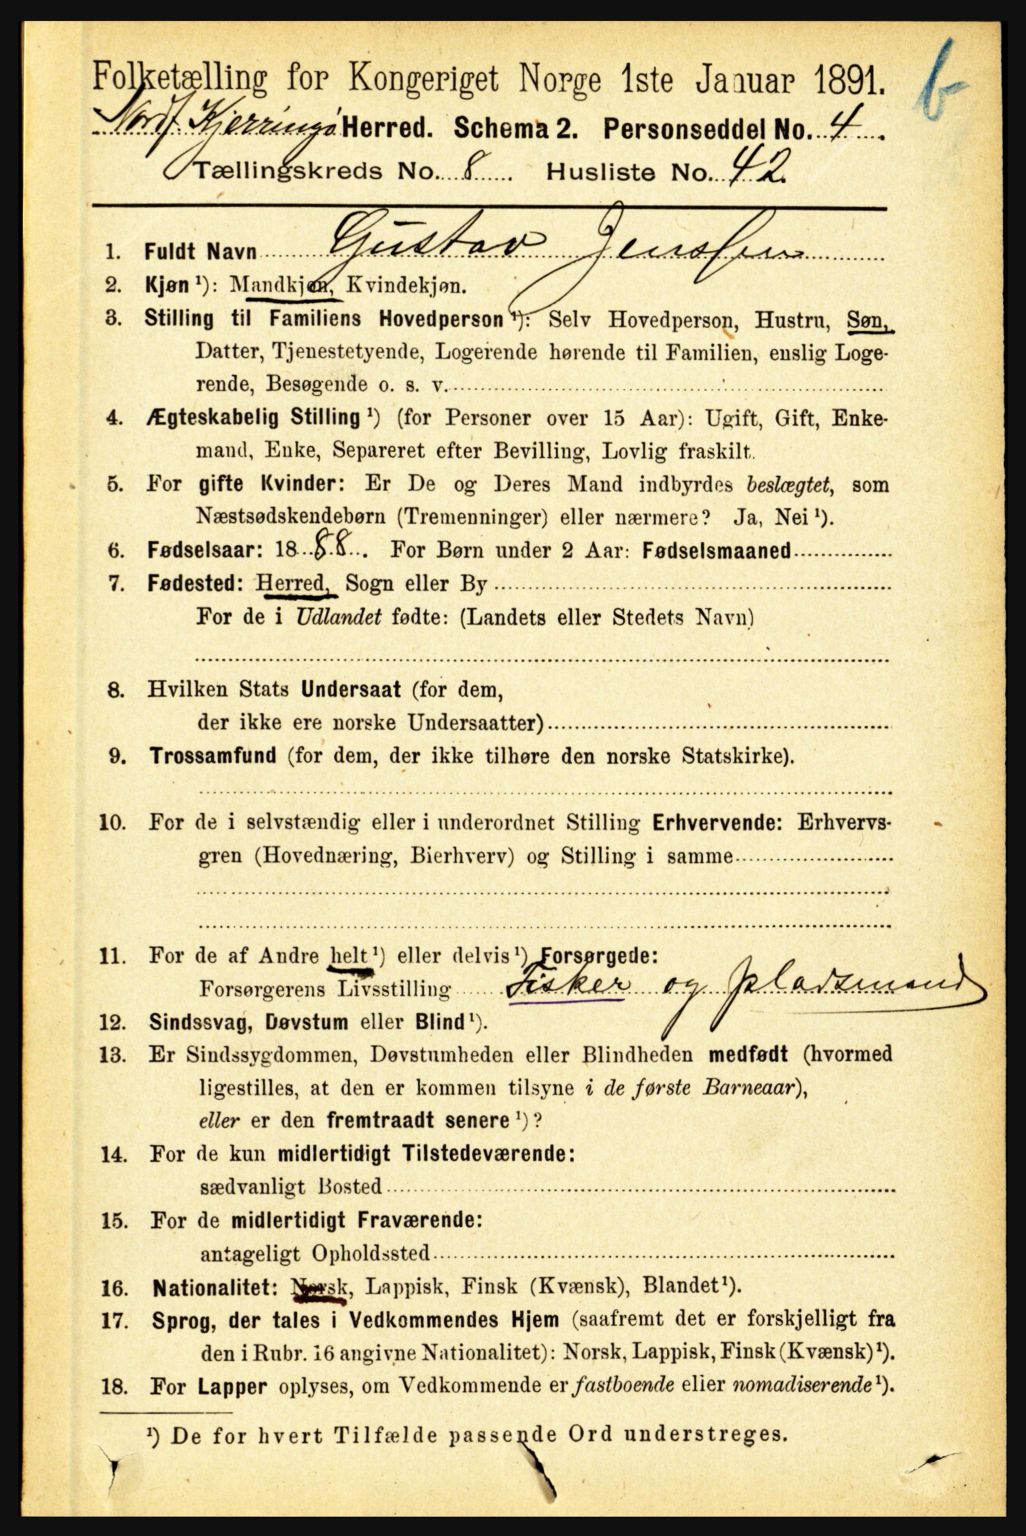 b
Folketælling for Kongeriget Norge 1ste Januar 1891.
Nordf. Kjerringø Herred. Schema 2. Personseddel No. 4.
Tællingskreds No. 8. Husliste No. 42.
1. Fuldt Navn Gustav Jenssen
2. Kjøn ¹): Mandkjøn, Kvindekjøn.
3. Stilling til Familiens Hovedperson ¹): Selv Hovedperson, Hustru, Søn,
Datter, Tjenestetyende, Logerende hørende til Familien, enslig Loge-
rende, Besøgende o. s. v.
4. Ægteskabelig Stilling ¹) (for Personer over 15 Aar): Ugift, Gift, Enke-
mand, Enke, Separeret efter Bevilling, Lovlig fraskilt.
5. For gifte Kvinder: Er De og Deres Mand indbyrdes beslægtet, som
Næstsødskendebørn (Tremenninger) eller nærmere? Ja, Nei ¹).
6. Fødselsaar: 1888. For Børn under 2 Aar: Fødselsmaaned
7. Fødested: Herred, Sogn eller By
For de i Udlandet fødte: (Landets eller Stedets Navn)
8. Hvilken Stats Undersaat (for dem,
der ikke ere norske Undersaatter)
9. Trossamfund (for dem, der ikke tilhøre den norske Statskirke).
10. For de i selvstændig eller i underordnet Stilling Erhvervende: Erhvervs-
gren (Hovednæring, Bierhverv) og Stilling i samme
11. For de af Andre helt ¹) eller delvis ¹) Forsørgede:
Forsørgerens Livsstilling Fisker og pladsmand
12. Sindssvag, Døvstum eller Blind ¹).
13. Er Sindssygdommen, Døvstumheden eller Blindheden medfødt (hvormed
ligestilles, at den er kommen tilsyne i de første Barneaar),
eller er den fremtraadt senere ¹)?
14. For de kun midlertidigt Tilstedeværende:
sædvanligt Bosted
15. For de midlertidigt Fraværende:
antageligt Opholdssted
16. Nationalitet: Norsk, Lappisk, Finsk (Kvænsk), Blandet ¹).
17. Sprog, der tales i Vedkommendes Hjem (saafremt det er forskjelligt fra
den i Rubr. 16 angivne Nationalitet): Norsk, Lappisk, Finsk (Kvænsk) ¹).
18. For Lapper oplyses, om Vedkommende er fastboende eller nomadiserende ¹).
¹) De for hvert Tilfælde passende Ord understreges.